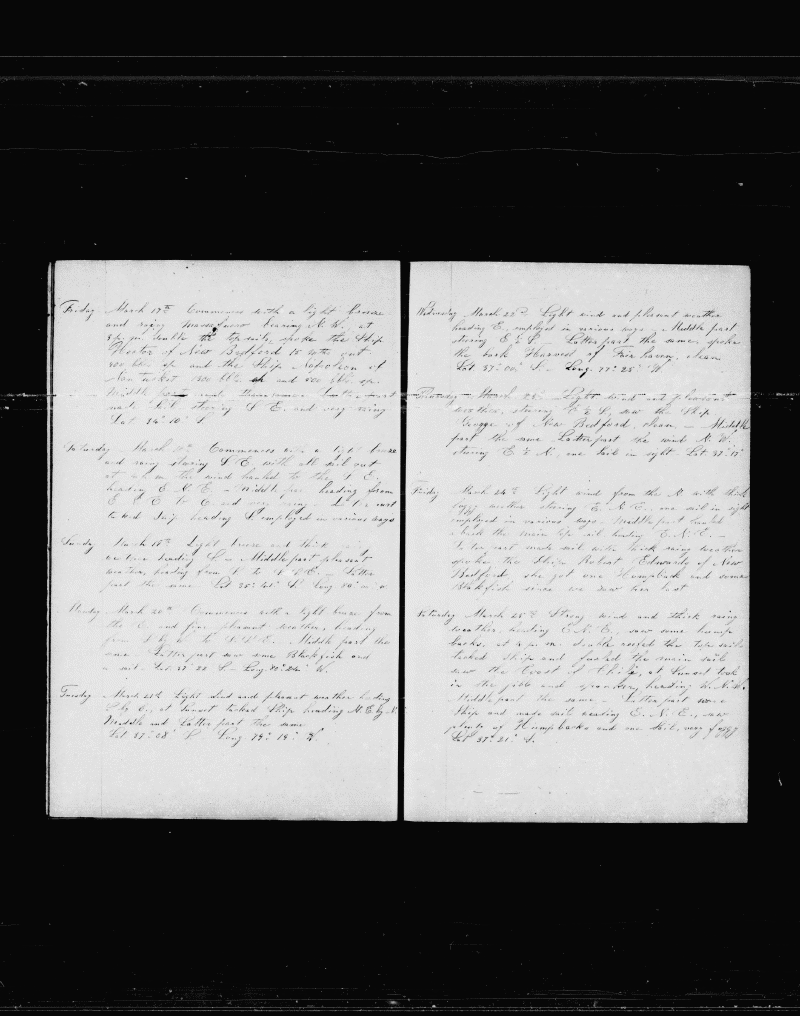 Friday March 17th Commences with a light breeze
and rainy heading N. W. at
4 p. m. double the top sails, spoke the Ship
Hector of New Bedford 15 mths out
bbls sp and the Ship Napoleon of
Nantucket 1300 bbls and 500 bbls sp.
Middle part Latter part
made sail steering S. E. and very rainy
Lat
Saturday March 18th Commences with a light breeze
and rainy steering S E. with all sail out
at the wind hauled to the S E.
heading E. N. E. - Middle part heading from
E and very rainy. Latter part
tacked Ship heading S. employed in various ways
Sunday March 19th Light breeze and thick rainy
weather heading S - Middle part pleasant
weather, heading from S to Latter
part the same Lat 35° 41' S. Long
Monday March 20th Commences with a light breeze from
the E and fine pleasant weather, heading
from S by W. to S.S.E. - Middle part the
same - Latter part saw some Blackfish and
a sail - Lat 37° 22' S - Long 80° 24' W.
Tuesday March 21th Light wind and pleasant weather heading
S by E., at sunset tacked Ship heading N. E. by N.
Middle and Latter part the same
Lat 37° 08' S. Long 79° 14' W.
Wednesday March 22d Light wind and pleasant weather
heading E. employed in various ways. Middle part
steering E & S - Latter part the same, spoke
the bark of Fair haven, clean
Lat 37° 00' S. - Long. 77° 25' W
Thursday March 23d Light wind and pleasant
weather, steering E & S, saw the Ship
George of New Bedford, clean. - Middle
part the same. Latter part the wind N. W.
steering E & N, one sail in sight. Lat 37° 13'
Friday March 24th Light wind from the N. with thick
foggy weather steering E. N. E., one sail in sight
employed in various ways. Middle part hauled
aback the main top sail heading E. N. E. -
Latter part made sail with thick rainy weather
spoke the Ship Robert Edwards of New
Bedford, she got one Humpback and some
Blackfish since we saw her last
Saturday March 25th Strong wind and thick rainy
weather, heading E N. E., saw some hump
backs, at 4 p. m. double reefed the top sails
tacked Ship and furled the main sail
saw the Coast of Chile, at Sunset took
in the jibb and spanker, heading W. N. W.
Middle part the same - Latter part wore
Ship and made sail heading E. N. E., saw
plenty of Humpbacks and one sail, very foggy
Lat 37° 21' S.